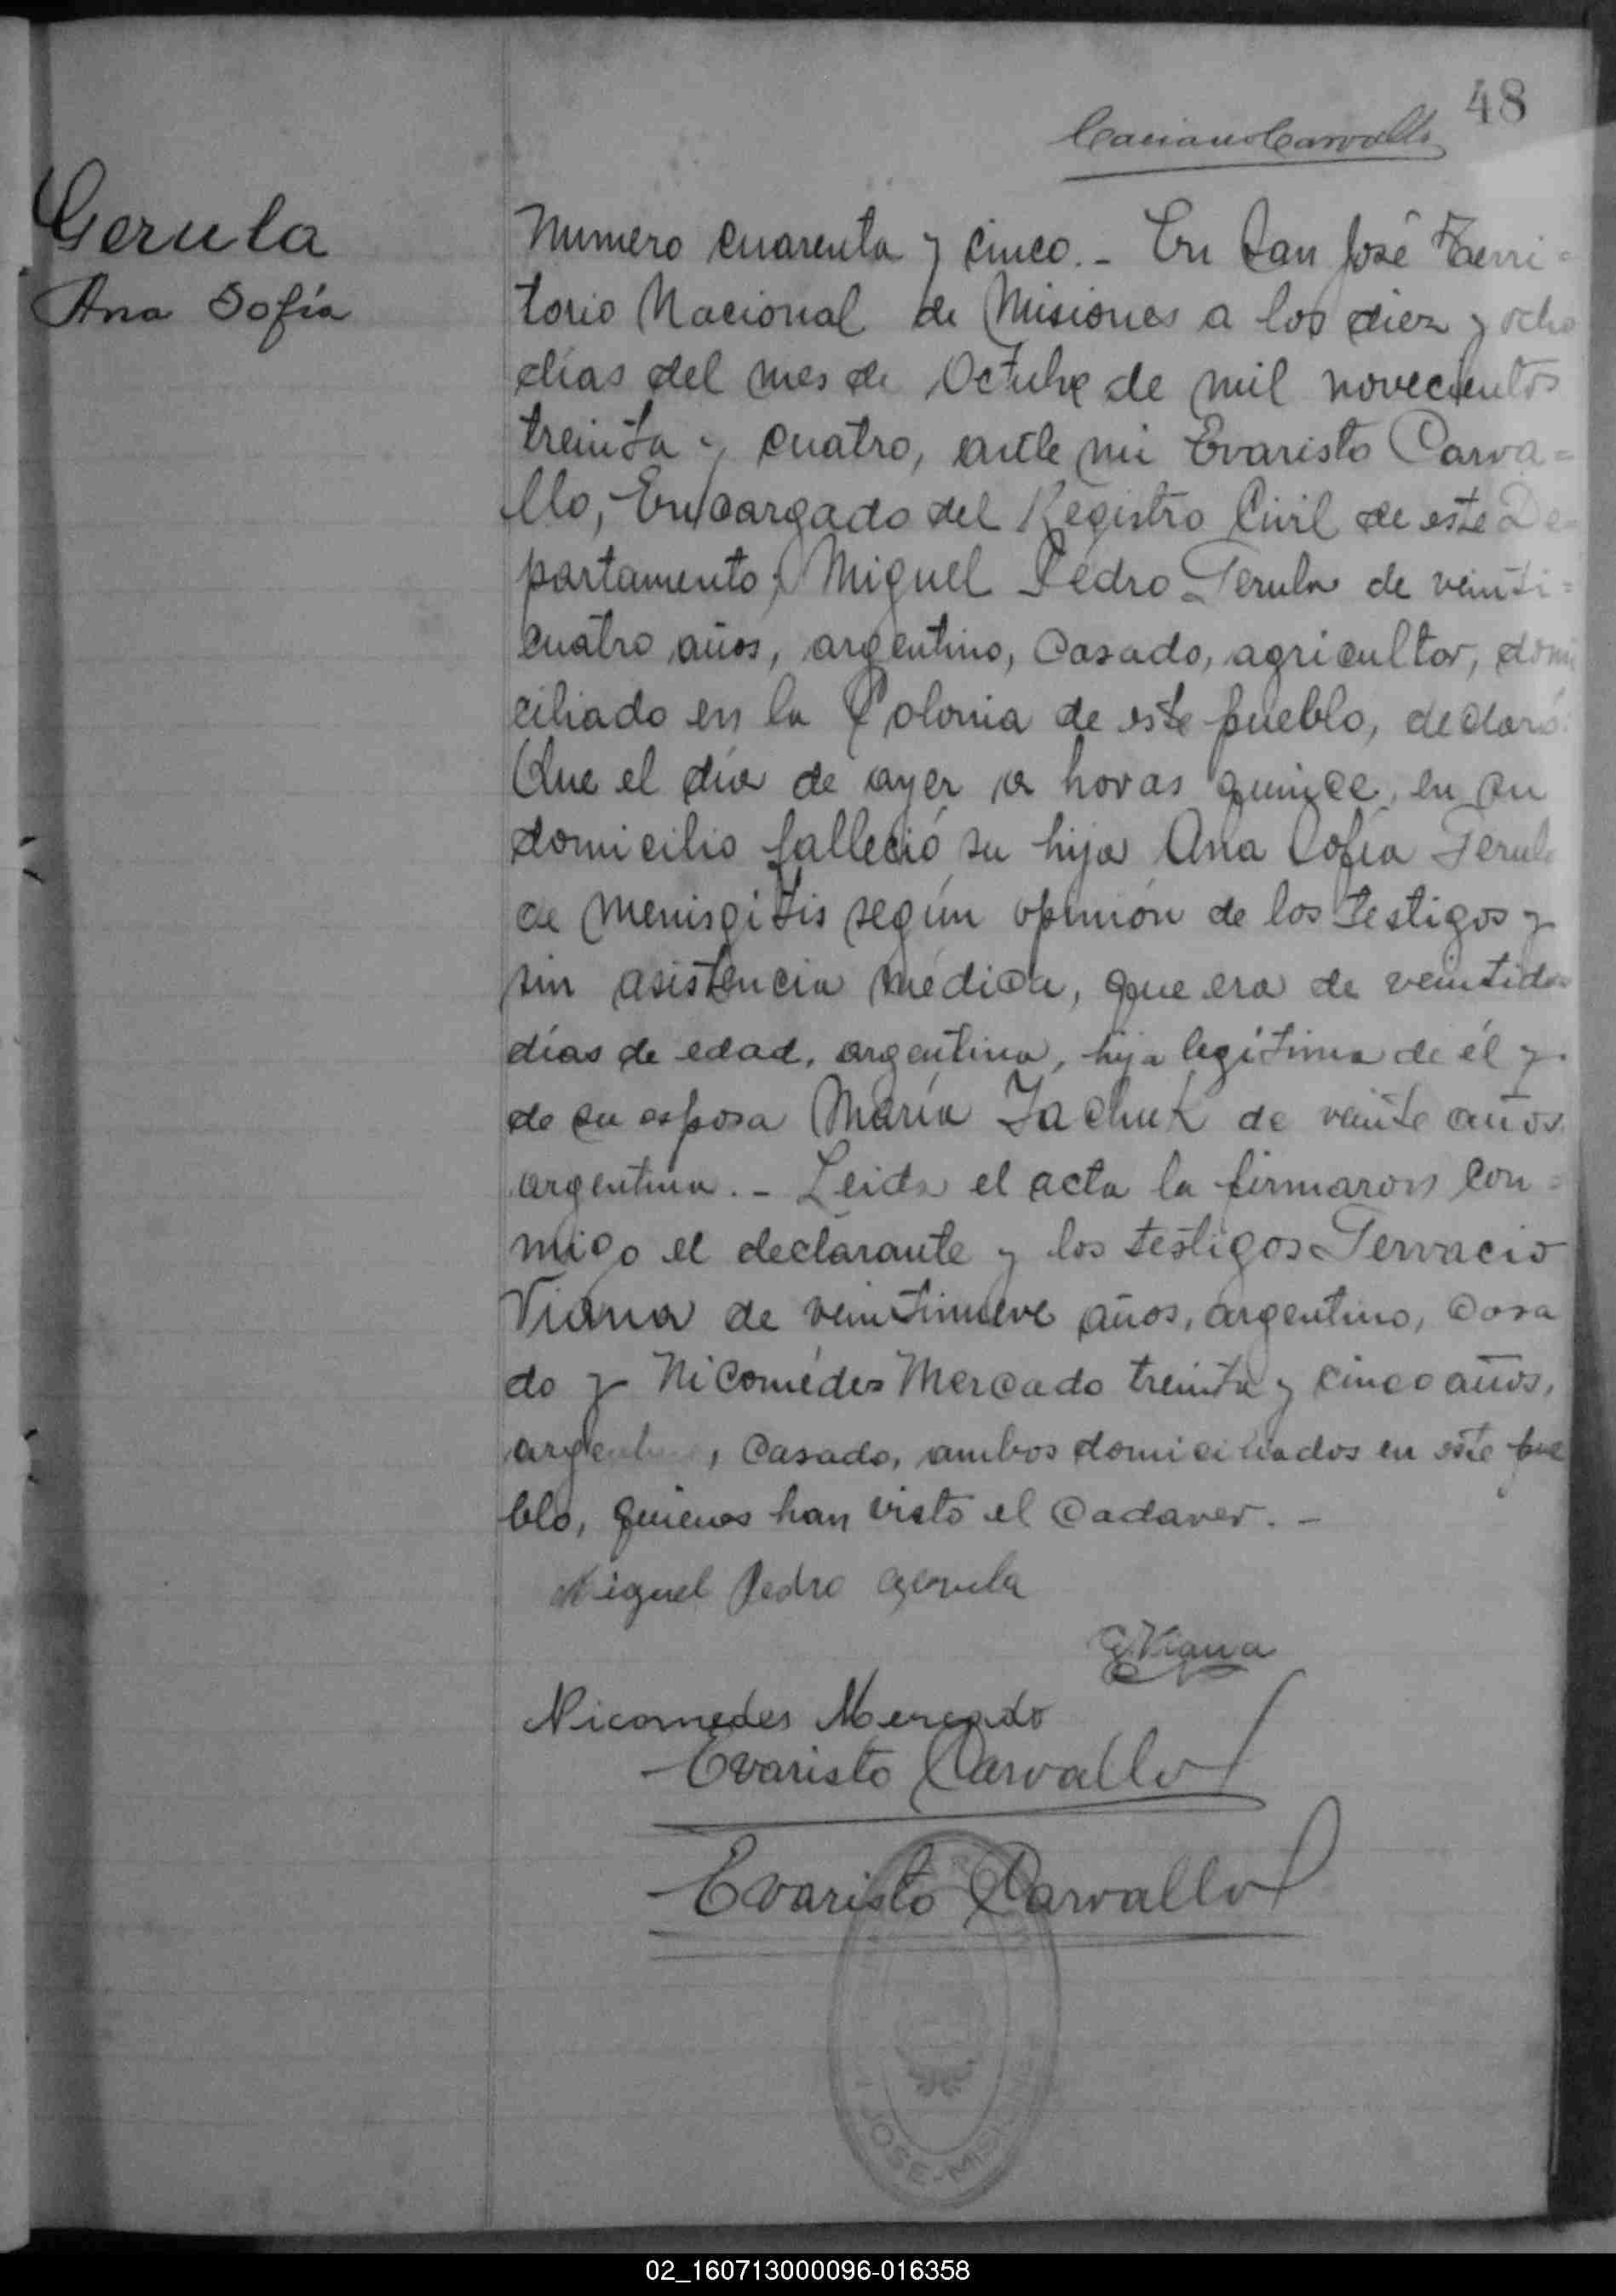 48
Casiano Carvallo
Gerula
Ana Sofía
Numero cuarenta y cinco. - En San José Terri=
torio Nacional de Misiones a los diez y ocho
días del mes de Octubre de mil novecientos
treinta y cuatro, ante mi Evaristo Carva=
llo, Encargado del Registro Civil de este De=
partamento, Miguel Pedro Gerula de veinti=
cuatro años, argentino, casado, agricultor, domi
ciliado en la Colonia de este pueblo, declaró:
Que el día de ayer a horas quince, en su
domicilio falleció su hija Ana Sofía Gerula
de menisgitis según opinión de los testigos y
sin asistencia médica, que era de veintidos
días de edad, argentina, hija legítima de él y
de su esposa María Zachuk de veinte años
argentina. - Leida el acta la firmaron con=
migo el declarante y los testigos Gervacio
Viana de veintinueve años, argentino, casa
do y Nicomédes Mercado treinta y cinco años,
argentino, casado, ambos domiciliados en este pue
blo, quienes han visto el cadaver. -
Miguel Pedro Gerula
G Viana
Nicomedes Mercado
Evaristo Carvallo
Evaristo Carvallo
JOSE-MISIONES
02_160713000096-016358